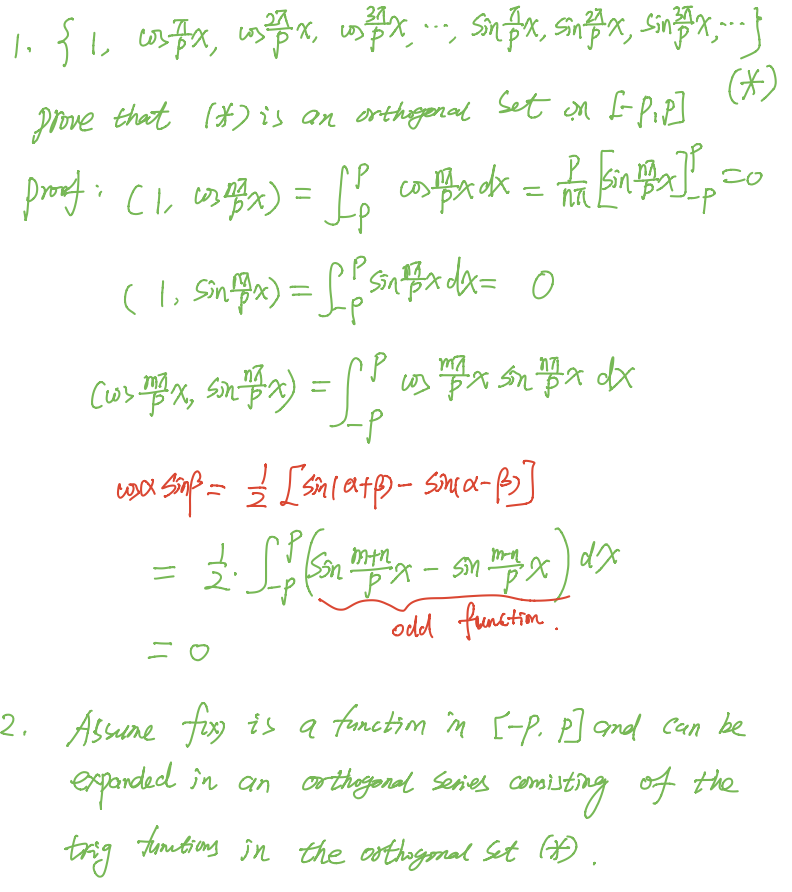 1. { 1, cos π/p x, cos 2π/p x, cos 3π/p x, ⋯, sin π/p x, sin 2π/p x, sin 3π/p x, ⋯ }
(*)
prove that (*) is an orthogonal set on [-p, p]
proof: (1, cos nπ/p x) = ∫_{-p}^{p} cos nπ/p x dx = p/nπ [sin nπ/p x]_{-p}^{p} = 0
(1, sin nπ/p x) = ∫_{-p}^{p} sin nπ/p x dx = 0
(cos mπ/p x, sin nπ/p x) = ∫_{-p}^{p} cos mπ/p x sin nπ/p x dx
cosα sinβ = 1/2 [sin(α+β) - sin(α-β)]
= 1/2 · ∫_{-p}^{p} (sin m+n/p x - sin m-n/p x) dx
odd function.
= 0
2. Assume f(x) is a function in [-p, p] and can be
expanded in an orthogonal series consisting of the
trig functions in the orthogonal set (*).